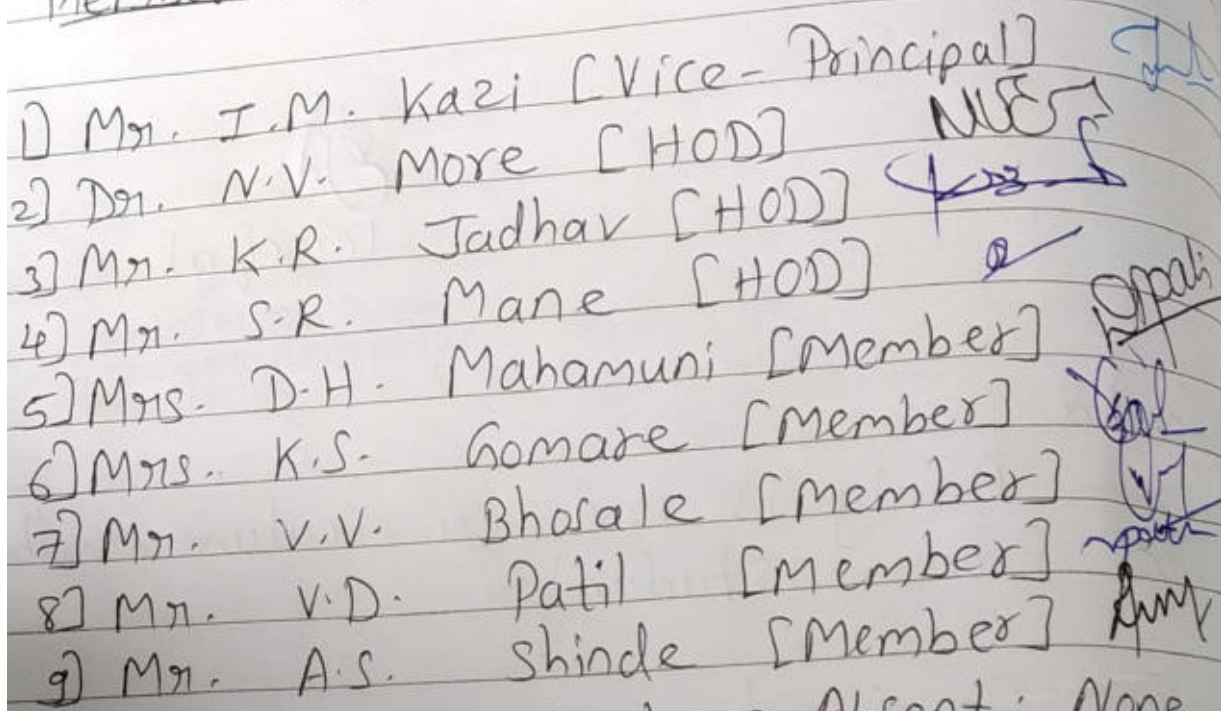 1] Mr. I.M. Kazi [Vice-Principal]
2] Dr. N.V. More [HOD]
3] Mr. K.R. Jadhav [HOD]
4] Mr. S.R. Mane [HOD]
5] Mrs. D.H. Mahamuni [Member]
6] Mrs. K.S. Gomare [Member]
7] Mr. V.V. Bhosale [Member]
8] Mr. V.D. Patil [Member]
9] Mr. A.S. Shinde [Member]
Absent: None